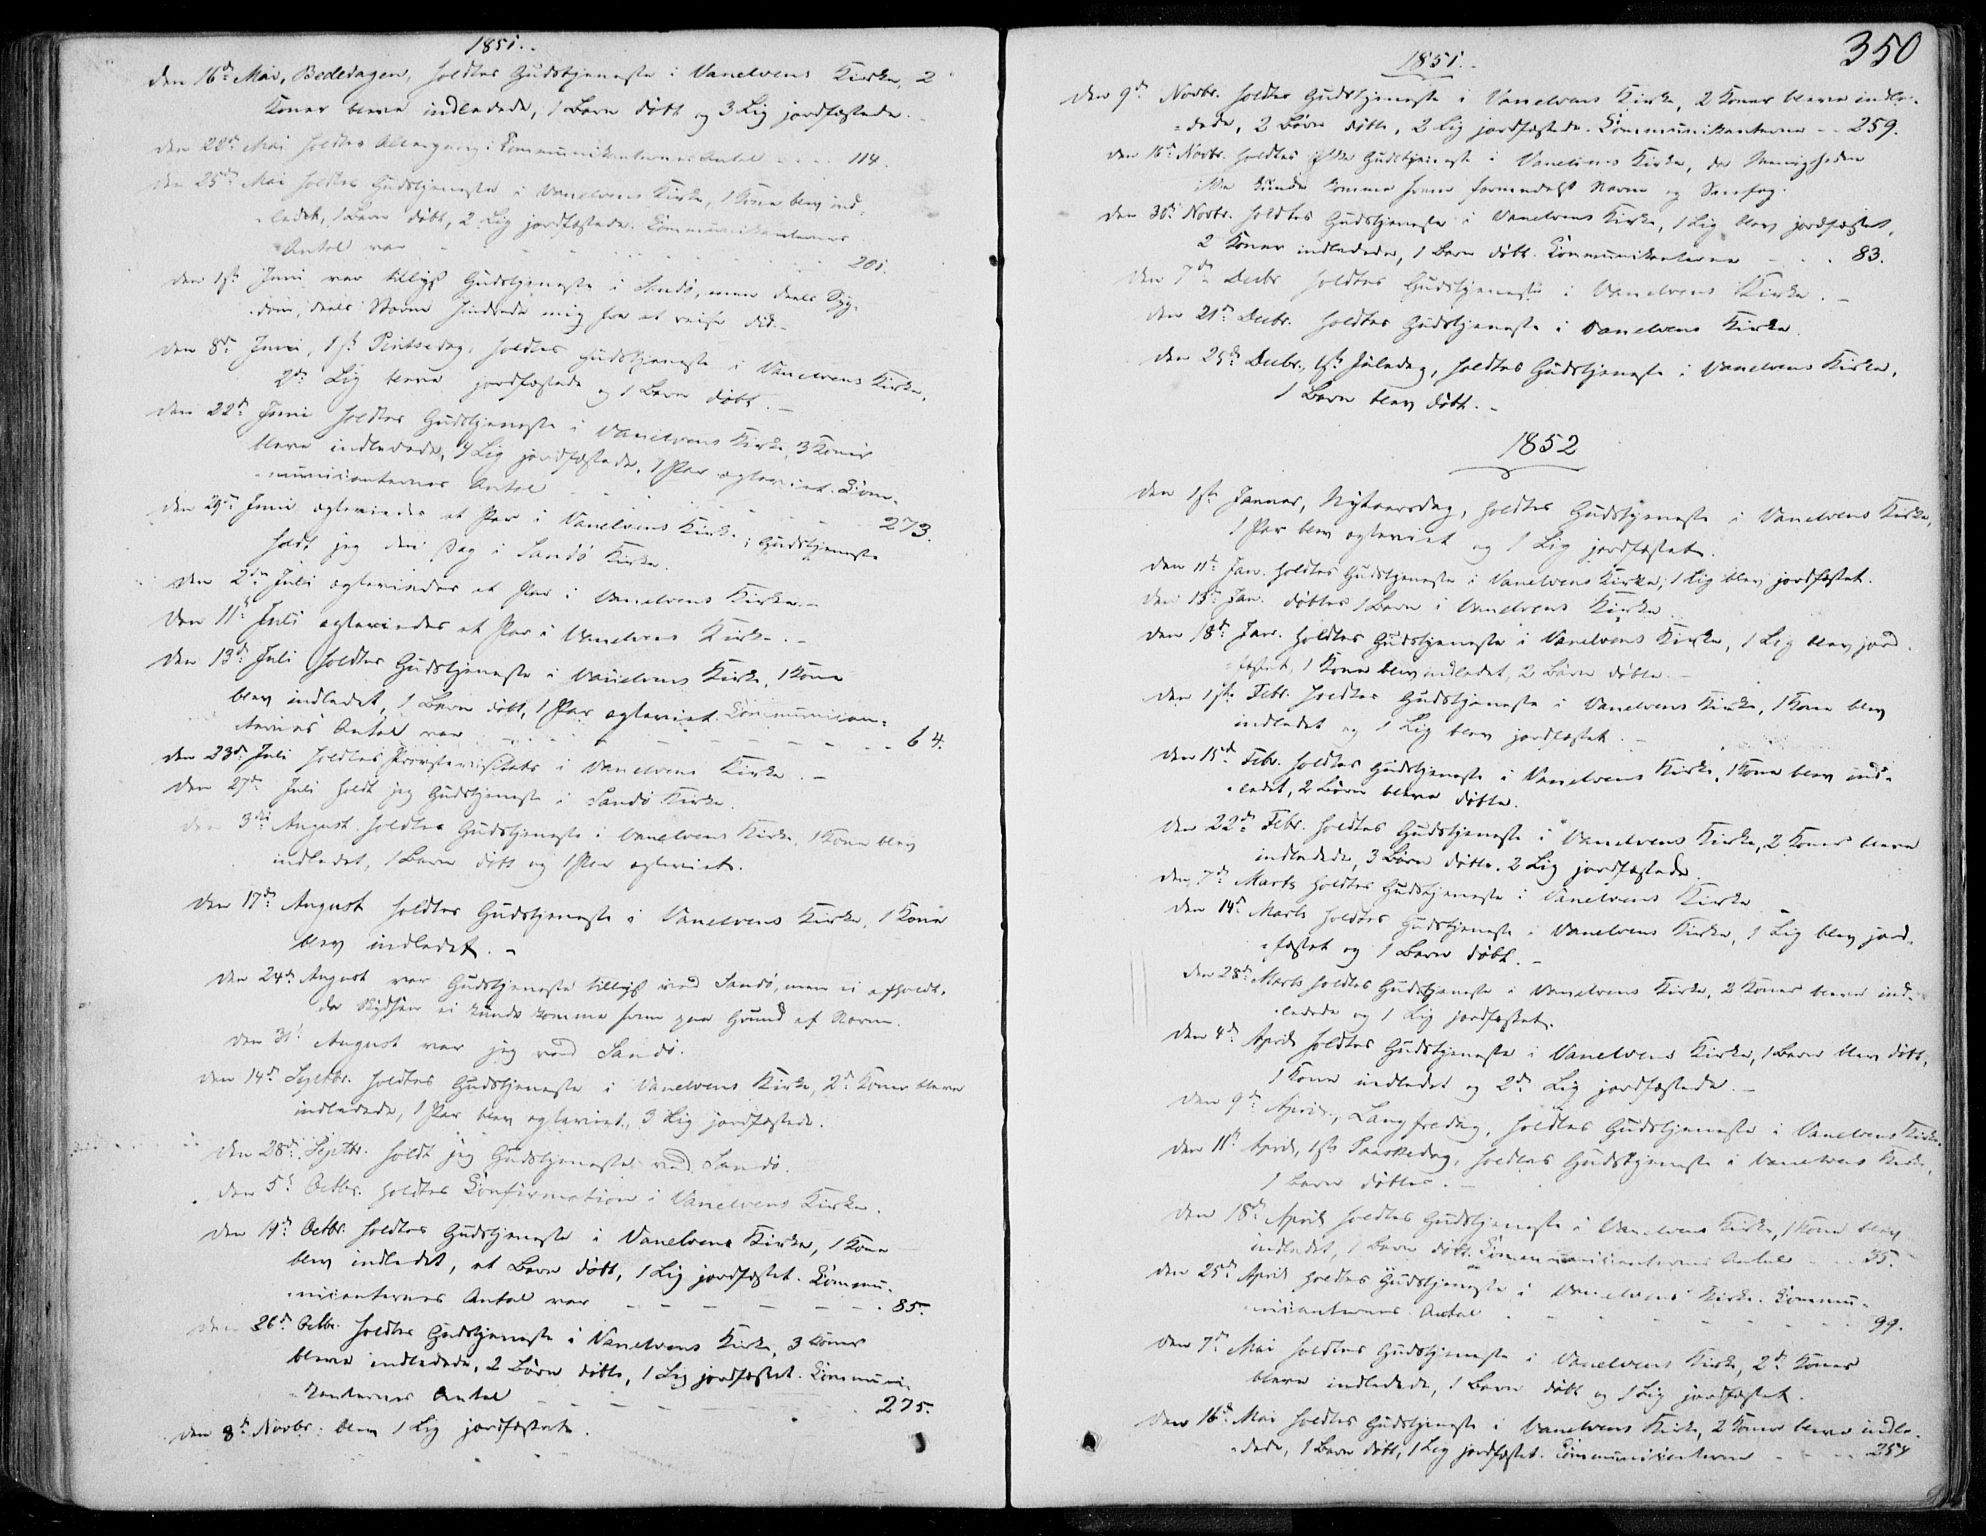 1851.
den 16de Mai, Bededagen, holdtes Gudstjeneste i Vanelvens Kirke, 2
Koner bleve indledede, 1 Barn døbt og 3 Lig jordfæstede.
den 22de Mai holdtes Altergang; Communikanternes Antal - - - 114.
den 25de Mai holdtes Gudstjeneste i Vanelvens Kirke, 1 Kone blev ind-
-ledet, 1 Barn døbt, 2 Lig jordfæstede. Communikanternes
Antal var - - - - - - 201.
den 1ste Juni var tillyst Gudstjeneste i Sandø, men deels Syg-
-dom, deels Storm hindrede mig fra at reise did.-
den 8de Juni, 1ste Pintsedag, holdtes Gudstjeneste i Vanelvens Kirke,
2de Lig bleve jordfæstede og 1 Barn døbt.-
den 22de Juni holdtes Gudstjeneste i Vanelvens Kirke, 3 Koner
bleve indledede, 4 Lig jordfæstede, 1 Par ægteviet. Com-
-municanternes Antal - - - - - 273.
den 29de Juni ægteviedes et Par i Vanelvens Kirke; Gudstjeneste
holdt jeg den Dag i Sandø Kirke.
den 2den Juli ægteviedes et Par i Vanelvens Kirke.-
den 11te Juli ægteviedes et Par i Vanelvens Kirke.-
den 13de Juli holdtes Gudstjeneste i Vanelvens Kirke, 1 Kone
blev indledet, 1 Barn døbt, 1 Par ægteviet. Communican-
-ternes Antal var - - - - - - 64.
den 23de Juli holdtes Provstevisitats i Vanelvens Kirke.-
den 27de Juli holdt jeg Gudstjeneste i Sandø Kirke.
den 3die August holdtes Gudstjeneste i Vanelvens Kirke, 1 Kone blev
indledet, 1 Barn døbt og 1 Par ægteviet.
den 17de August holdtes Gudstjeneste i Vanelvens Kirke, 1 Kone
blev indledet.-
den 24de August var Gudstjeneste tillyst ved Sandø, men ei afholdt,
da Skydsen ei kunde komme frem paa Grund af Storm.
den 31te August var jeg ved Sandø.
den 14de Septbr. holdtes Gudstjeneste i Vanelvens Kirke, 2de Koner bleve
indledede, 1 Par blev ægteviet, 3 Lig jordfæstede.
den 28de Septbr. holdt jeg Gudstjeneste ved Sandø.
den 5te Octbr. holdtes Confirmation i Vanelvens Kirke.
den 19de Octbr. holdtes Gudstjeneste i Vanelvens Kirke, 1 Kone
blev indledet, et Barn døbt, 1 Lig jordfæstet. Commu-
-nicanternes Antal var - - - - - - 85.
den 26de Octbr. holdtes Gudstjeneste i Vanelvens Kirke, 3 Koner
bleve indledede, 2 Børn døbte, 1 Lig jordfæstet. Communi-
-kanternes Antal - - - - - 275.
den 8de Novbr. blev 1 Lig jordfæstet.
350
1851.
den 9de Novbr. holdtes Gudstjeneste i Vanelvens Kirke, 2 Koner bleve indle-
-dede, 2 Børn døbte, 2 Lig jordfæstede. Communikanterne - - 259.
den 16de Novbr. holdtes ikke Gudstjeneste i Vanelvens Kirke, da Menigheden
ikke kunde komme frem formedelst Storm og Snefog.
den 30te Novbr. holdtes Gudstjeneste i Vanelvens Kirke, 1 Lig blev jordfæstet,
2 Koner indledede, 1 Barn døbt. Communikanterne - - - 83.
den 7de Decbr holdtes Gudstjeneste i Vanelvens Kirke.-
den 21de Decbr. holdtes Gudstjeneste i Vanelvens Kirke.
den 25de Decbr., 1ste Juledag, holdtes Gudstjeneste i Vanelvens Kirke,
1 Barn blev døbt.-
1852
den 1ste Januar, Nytaarsdag, holdtes Gudstjeneste i Vanelvens Kirke,
1 Par blev ægteviet og 1 Lig jordfæstet.
den 11te Jan. holdtes Gudstjeneste i Vanelvens Kirke; 1 Lig blev jordfæstet.
den 15de Jan. døbtes 1 Barn i Vanelvens Kirke
den 18de Jan. holdtes Gudstjeneste i Vanelvens Kirke, 1 Lig blev jord-
-fæstet, 1 Kone blev indledet, 2 Børn døbte.-
den 1ste Febr. holdtes Gudstjeneste i Vanelvens Kirke, 1 Kone blev
indledet og 1 Lig blev jordfæstet.-
den 15de Febr. holdtes Gudstjeneste i Vanelvens Kirke, 1 Kone blev ind-
-ledet, 2 Børn bleve døbte.
den 22de Febr. holdtes Gudstjeneste i Vanelvens Kirke, 2 Koner bleve
indledede, 3 Børn døbte, 2 Lig jordfæstede.
den 7de Marts holdtes Gudstjeneste i Vanelvens Kirke
den 14de Marts holdtes Gudstjeneste i Vanelvens Kirke, 1 Lig blev jord-
-fæstet og 1 Barn døbt.-
den 28de Marts holdtes Gudstjeneste i Vanelvens Kirke, 2 Koner bleve ind-
-ledede og 1 Lig jordfæstet.
den 4de April holdtes Gudstjeneste i Vanelvens Kirke, 1 Barn blev døbt,
1 Kone indledet og 2de Lig jordfæstede.-
den 9de April, Langfredag, holdtes Gudstjeneste i Vanelvens Kirke.
den 11te April, 1ste Paaskedag, holdtes Gudstjeneste i Vanelvens Kirke,
1 Barn døbtes.-
den 18de April holdtes Gudstjeneste i Vanelvens Kirke, 1 Kone blev
indledet, 1 Barn døbt. Communicanternes Antal - - - 35.
den 25de April holdtes Gudstjeneste i Vanelvens Kirke. Commu-
-nicanternes Antal - - - - - - 99.
den 7de Mai holdtes Gudstjeneste i Vanelvens Kirke, 2de Koner
bleve indledede, 1 Barn døbt og 1 Lig jordfæstet.
den 16de Mai holdtes Gudstjeneste i Vanelvens Kirke, 2 Koner bleve indle-
-dede, 1 Barn døbt, 1 Lig jordfæstet. Communicanterne - - - 254